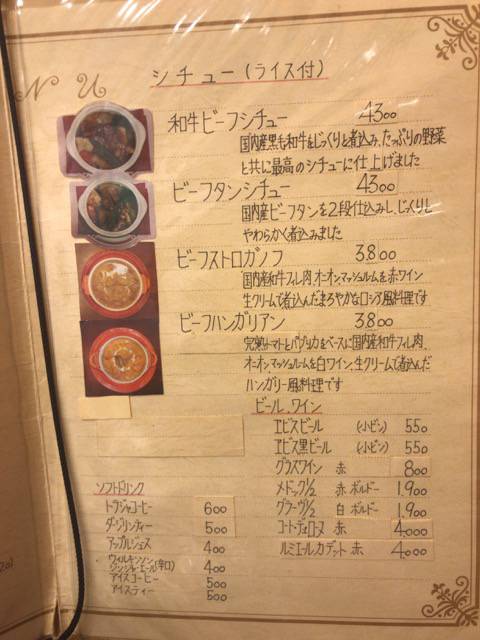 N U
シチュー(ライス付)
和牛ビーフシチュー 4300
国内産黒毛和牛をじっくりと煮込み、たっぷりの野菜
と共に最高のシチューに仕上げました
ビーフタンシチュー 4300
国内産ビーフタンを2段仕込みし、じっくりと
やわらかく煮込みました
ビーフストロガノフ 3.800
国内産和牛フィレ肉、オニオンマッシュルームを赤ワイン
生クリームで煮込んだまろやかなロシア風料理です
ビーフハンガリアン 3.800
完熟トマトとパプリカをベースに国内産和牛フィレ肉、
オニオン、マッシュルームを白ワイン、生クリームで煮込んだ
ハンガリー風料理です
ビール.ワイン
ヱビスビール (小ビン) 550
ヱビス黒ビール (小ビン) 550
グラスワイン 赤 800
メドック1/2 赤 ボルドー 1.900
グラーヴ1/2 白 ボルドー 1.900
コート・デュ・ローヌ 赤 4.000
ルミエールカデット 赤 4.000
ソフトドリンク
トラジャコーヒー 600
ダージリンティー 500
アップルジュース 400
ウィルキンソン
ジンジャーエール(辛口) 400
アイスコーヒー 500
アイスティー 500